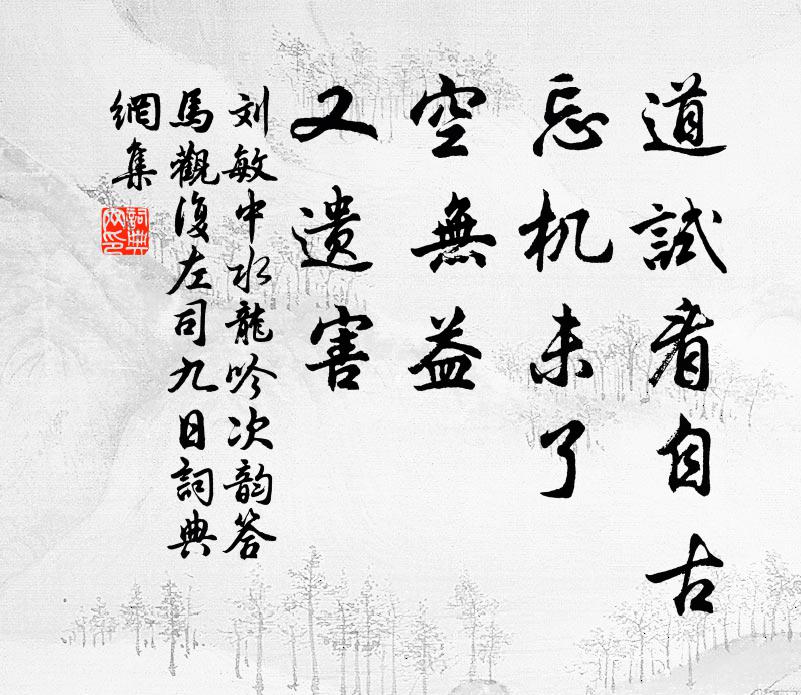 道試看自古
忘机未了
空無益
又遗害
刘敏中水龍吟次韵答
馬觀復左司九日詞典
網集
詞典网印